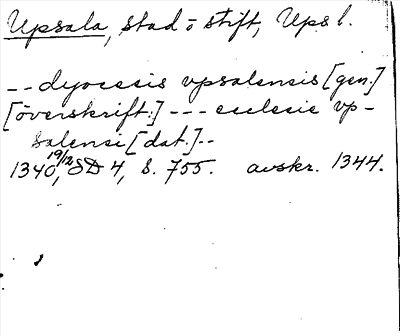 Upsala, stad o stift, Upsl.
-- dyocesis vpsalensis [gen.]
[överskrift.] --- ecclesie vp-
salensi [dat.]--
1340 19/12, SD 4, S. 755. avskr. 1344.